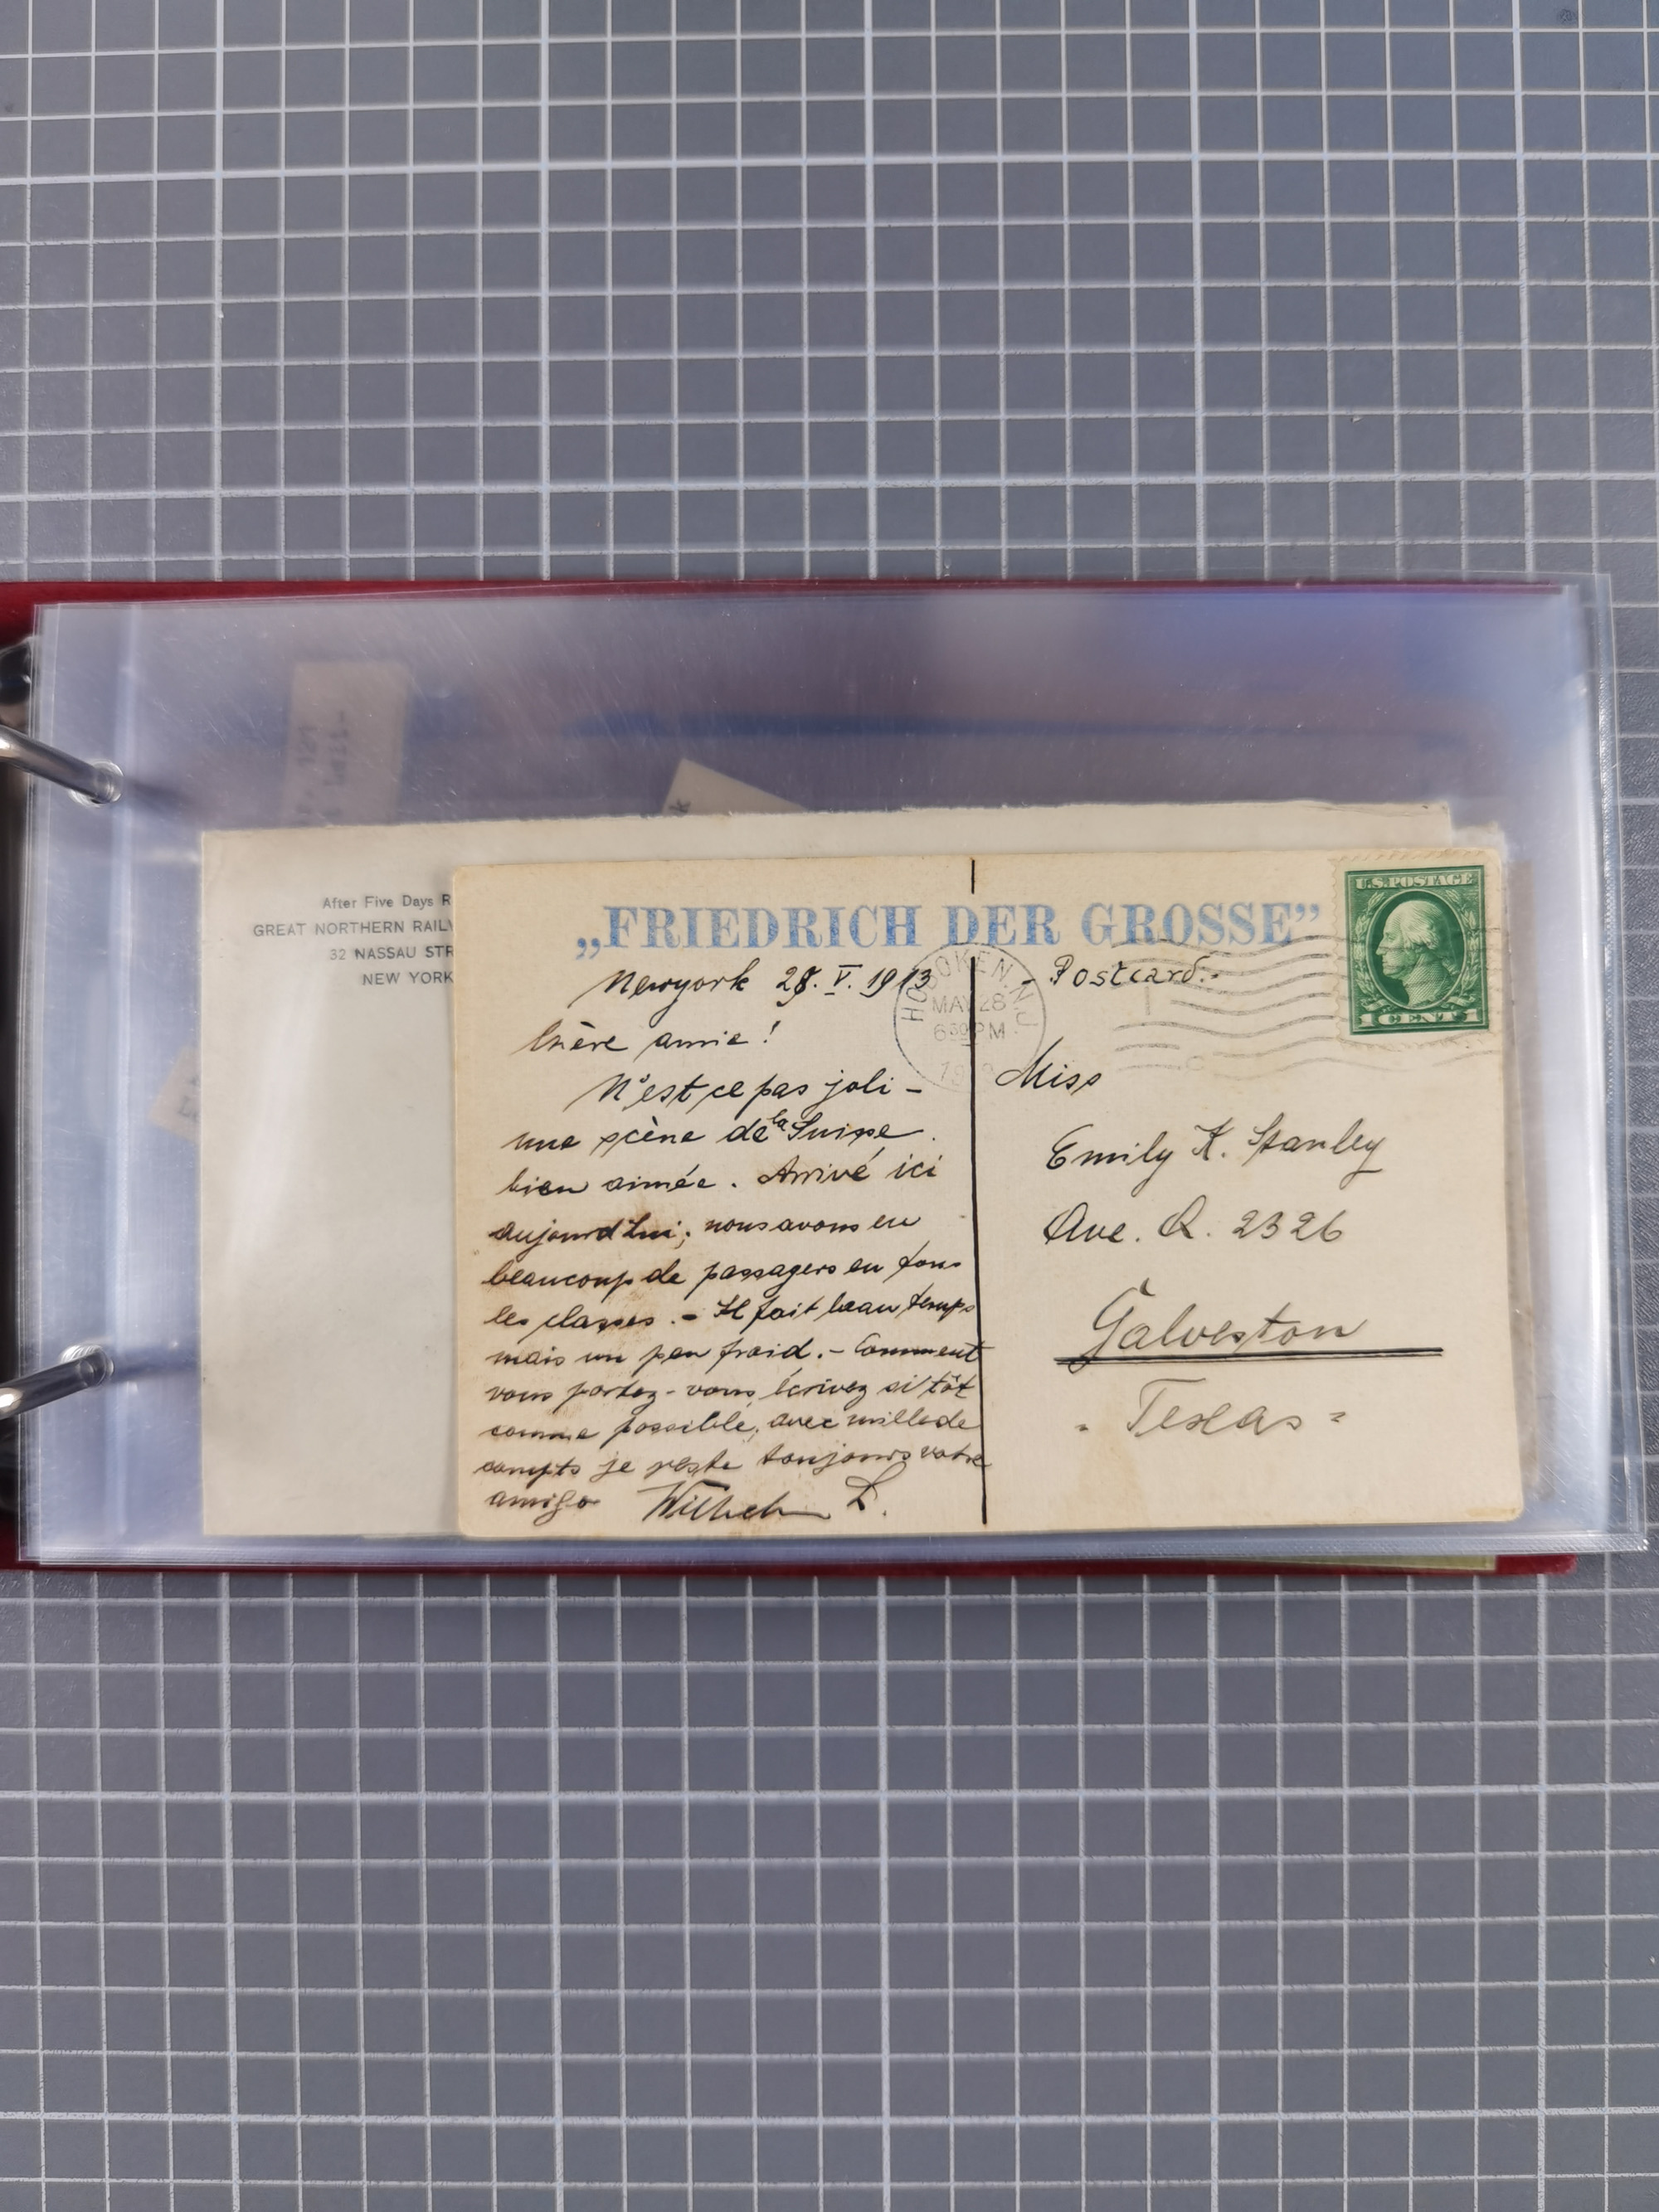 After Five Days R
GREAT NORTHERN RAILW
32 NASSAU STR
NEW YORK
„FRIEDRICH DER GROSSE”
Newyork 28. V. 1913
Chère amie!
N'est ce pas joli –
une scène de la Suisse
bien aimée. Arrivé ici
aujourd'hui; nous avons eu
beaucoup de passagers en tous
les classes. – Il fait beau temps
mais un peu froid. – Comment
vous portez-vous, écrivez si tôt
comme possible, avec mille de
compts je reste toujours votre
amigo Wilhelm L.
HOBOKEN, N.J.
MAY 28
6 30 PM
Postcard.
U.S. POSTAGE
1 CENT 1
Miss
Emily K. Stanley
Ave. Q. 2326
Galveston
Texas